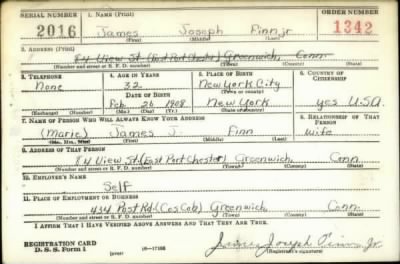 SERIAL NUMBER 1. NAME (Print) ORDER NUMBER
2016 James Joseph Finn jr 1342
(First) (Middle) (Last)
2. ADDRESS (Print)
84 View St. (East Port Chester) Greenwich, Conn.
(Number and street or R. F. D. number) (Town) (County) (State)
3. TELEPHONE 4. AGE IN YEARS 5. PLACE OF BIRTH 6. COUNTRY OF CITIZENSHIP
None 32 New York City
DATE OF BIRTH (Town or county)
Feb. 26 1908 New York Yes U.S.A
(Exchange) (Number) (Mo.) (Day) (Yr.) (State or country)
7. NAME OF PERSON WHO WILL ALWAYS KNOW YOUR ADDRESS 8. RELATIONSHIP OF THAT PERSON
(Marie) James J. Finn Wife
(Mr., Mrs., Miss) (First) (Middle) (Last)
9. ADDRESS OF THAT PERSON
84 View St (East Port Chester) Greenwich, Conn.
(Number and street or R. F. D. number) (Town) (County) (State)
10. EMPLOYER'S NAME
Self
11. PLACE OF EMPLOYMENT OR BUSINESS
434 Post Rd. (Cos Cob) Greenwich, Conn.
(Number and street or R. F. D. number) (Town) (County) (State)
I AFFIRM THAT I HAVE VERIFIED ABOVE ANSWERS AND THAT THEY ARE TRUE.
REGISTRATION CARD
D. S. S. Form 1 (over) 16—17105 James Joseph Finn Jr.
(Registrant's signature)